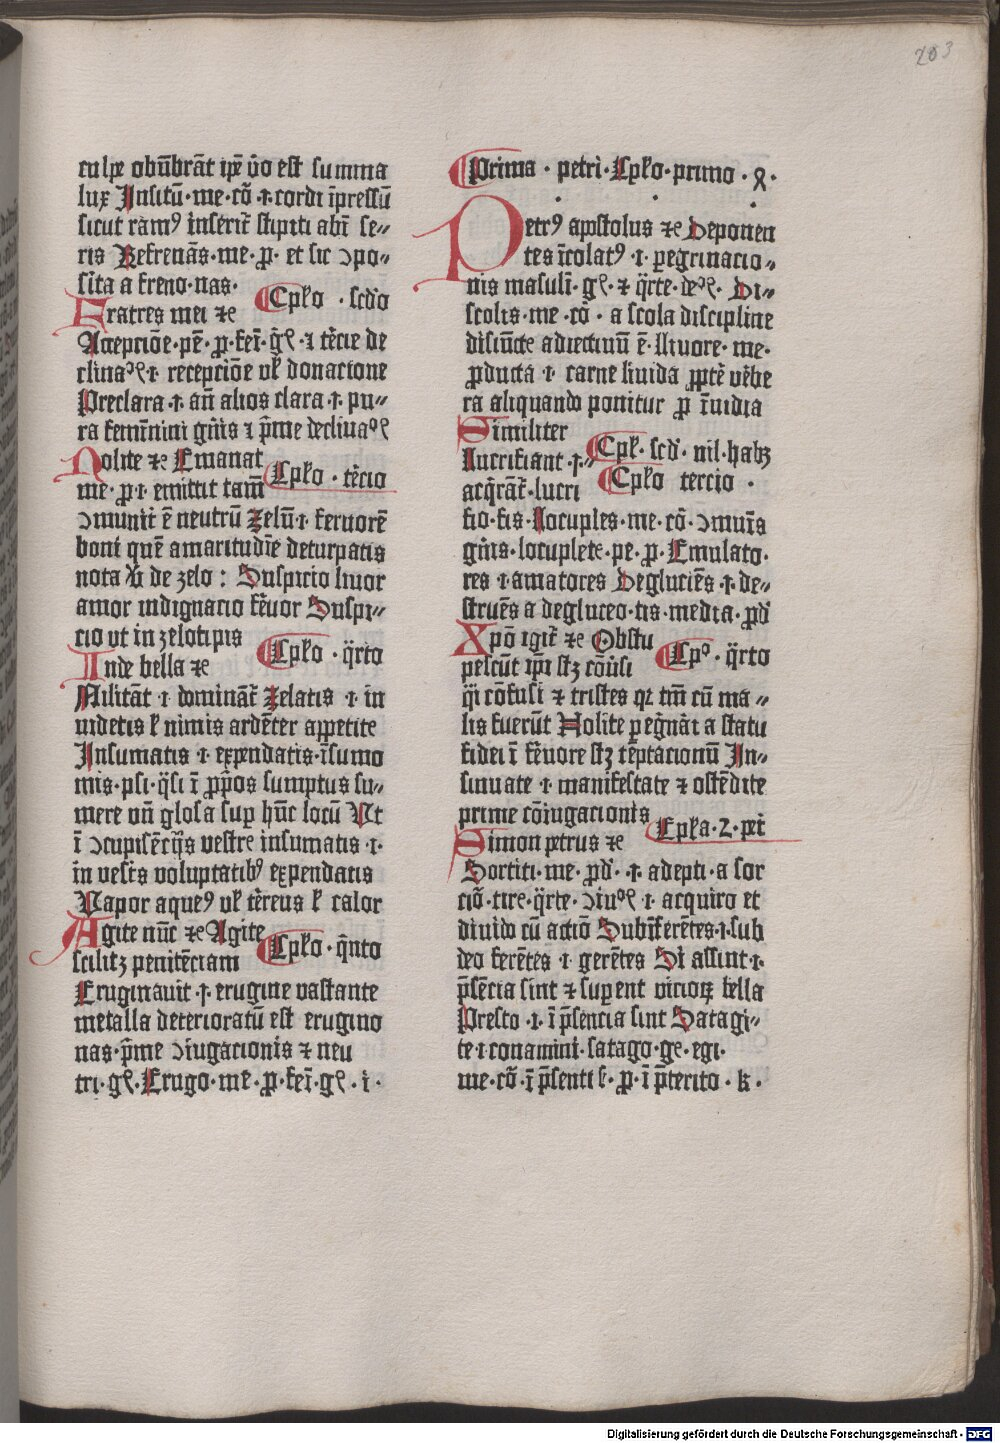 203
culpe obūbrāt ip̄e v̄o est summa
lux Insitū · me · cō · ı · cordi īpressū
sicut ramꝰ inserit᷑ stipiti abī se〃
ris Refrenās · me · ꝓ · et sic ↄpo〃
sita a freno · nas ·
Cplo · scd̄o
Fratres mei ⁊c̄
Accepciōe · pē · ꝓ · fēī · gñ̄ · ı t̄cie de
clinaꝰ̄ · ı · recepciōe vl̓ donacione
Preclara · ı · an̄ alios clara · ı · pu〃
ra femīnini gn̄is ⁊ p̄me declinaꝰ̄
Nolite ⁊c̄ Emanat
Cplo · t̄cio
me · ꝓ · ı · emittit tam̄
ↄmunit᷑ ē neutrū Zelū · ı · feruorē
boni quē amaritudīe deturpatis
nota v̓ de zelo : Suspicio liuor
amor indignacio f̄uor Suspi〃
cio vt in zelotipis
Cplo · q̄rto
Inde bella ⁊c̄
Militāt · ı domināt᷑ Zelatis · ı · in
uidetis l̓ nimis ardēter appetite
Insumatis · ı · expendatis · īsumo
mis · psi · q̄si ī ꝓp̄os sumptus su〃
mere vn̄ glosa suꝑ hūc locū Vt
ī ↄcupiscēcijs vestre insumatis · ı ·
in vesīs voluptatibꝰ expendatis
Vapor aqueꝰ vl̓ t̄reus l̓ calor
Agite nūc ⁊c̄ Agite
Cplo · q̄nto
scilitꝫ penitēciam
Eruginauit · ı · erugine vastante
metalla deterioratū est erugino
nas · p̄me ↄiugacionis ⁊ neu
tri · gñ̄ · Erugo · me · ꝓ · fēī · gñ̄ · ı̇ ·
Prima · petri · Cplo · primo · ꝩ ·
Petrꝰ apostolus ⁊c̄ Deponen
tes īcolatꝰ · ı · ꝑegrinacio〃
nis masulī · gñ̄ · ⁊ q̄rte · deꝰ̄ · Di〃
scolis · me · cō · a scola discipline
disiūcte adiectiuū ē · Liuore · me ·
ꝓducta · ı · carne liuida ꝓpt̄ v̄be
ra aliquando ponitur ꝓ īuidia
Similiter
Cpl · scd̄ · nil · habꝫ
Lucrifiant · ı〃
Cplo tercio ·
acq̄rāt᷑ · lucri
fio · fis · Locuples · me · cō · ↄmuīs
gn̄is · locuplete · pe · ꝓ · Emulato ·
res · ı · amatores Degluciēs · ı · de〃
struēs a degluceo · tis · media · ꝓd̄
Xpō igit᷑ ⁊c̄ Obstu
Cpᵒ · q̄rto
pescūt ip̄ī stꝫ cōusi
q̄i cōfusi ⁊ tristes qꝛ tm̄ cū ma〃
lis fuerūt Nolite ꝑegīāt a statu
fidei ī f̄uore stꝫ tēptacionū In〃
sinuate · ı · manifestate ⁊ ostēdite
prime cōiugacionis
Epl̓a · 2 · pet᷑
Simon petrus ⁊c̄
Sortiti · me · ꝓd̄ · · ı · adepti · a sor
ciō · tire · q̄rte · ↄiuꝰ̄ · ı · acquiro et
diuido cū actiō Subīferētes · ı · sub
deo ferētes · ı · gerētes Si assint · ı ·
p̄sēcia sint ⁊ suꝑent vicioꝝ bella
Presto · ı · ī p̄sencia sint Satagi〃
te · ı conamini · satago · ge · egi ·
me · cō · ī p̄senti ß · ꝓ · ī p̄terito · k ·
Digitalisierung gefördert durch die Deutsche Forschungsgemeinschaft - DFG